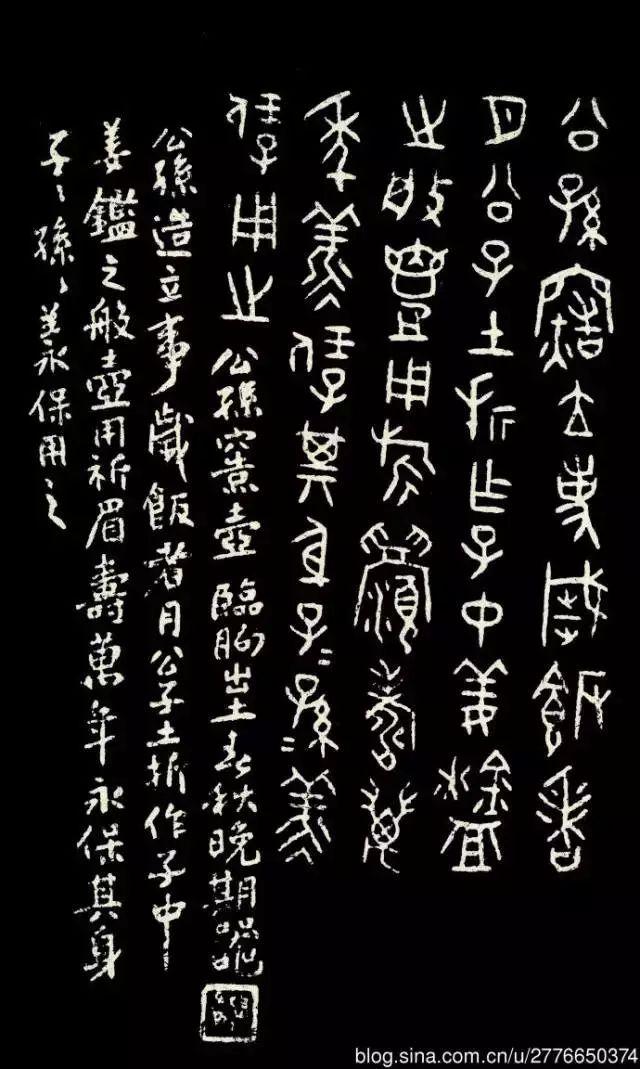 公孫竈立事歲飯者
月公子土折乍子中姜
之般壺用旂眉壽萬
年羕保其身子=孫=羕
保用之 公孫竈壺 臨朐出土春秋晚期器
公孫造立事歲飯者月公子土折作子中
姜鑑之般壺用祈眉壽萬年永保其身
子〻孫〻羕保用之
blog.sina.com.cn/u/2776650374